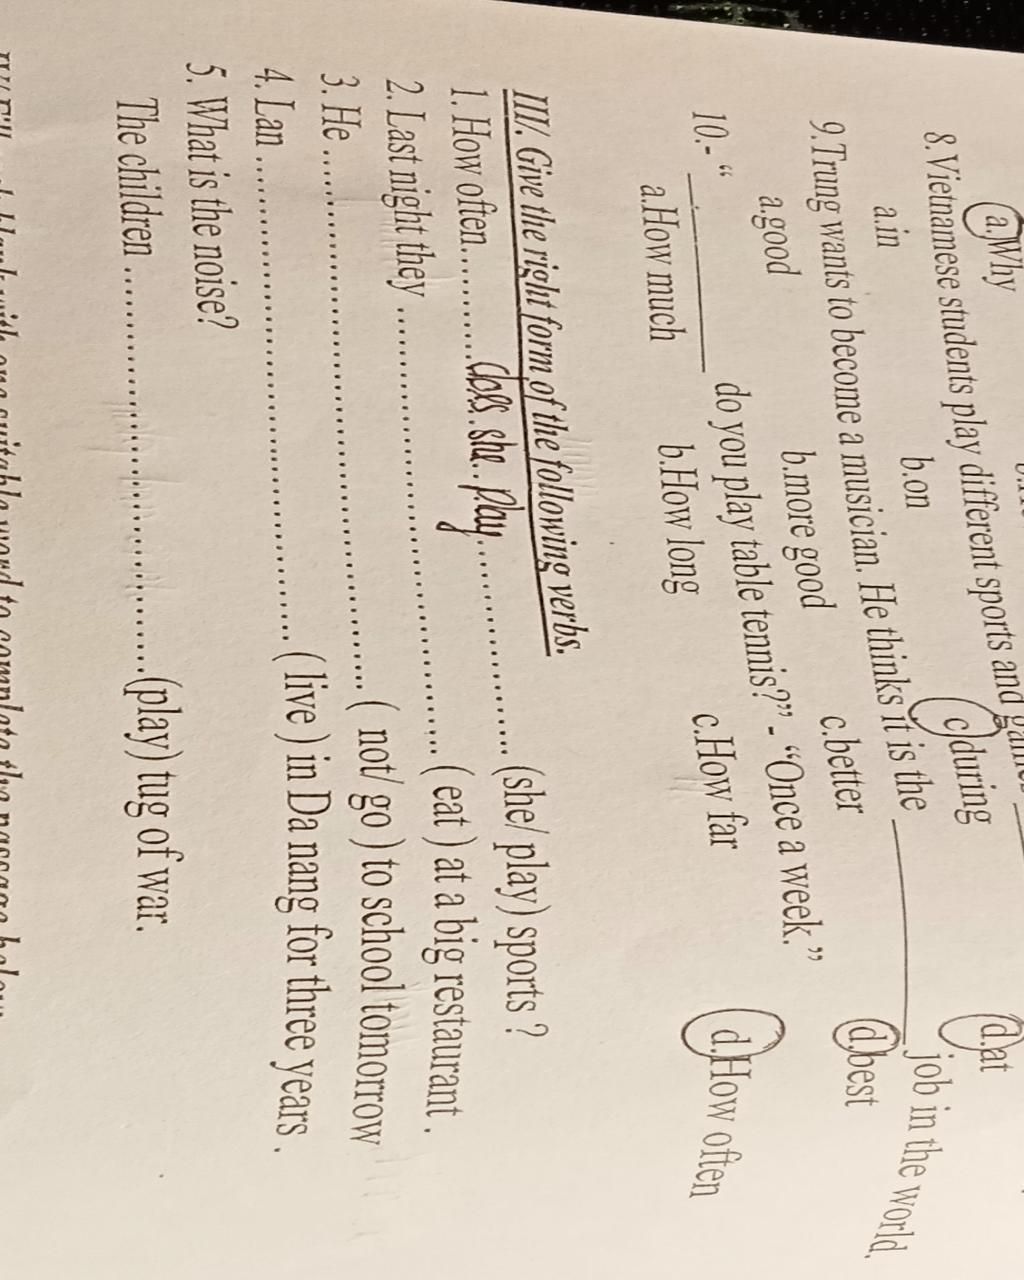 a.Why
8.Vietnamese students play different sports and
a.in b.on c.during d.at
9.Trung wants to become a musician. He thinks it is the ________ job in the world.
a.good b.more good c.better d.best
10.- “ ________ do you play table tennis?” - “Once a week.”
a.How much b.How long c.How far d.How often
III/. Give the right form of the following verbs.
1. How often..........does she play.................. (she/ play) sports ?
2. Last night they ........................................ ( eat ) at a big restaurant .
3. He .................................................. ( not/ go ) to school tomorrow
4. Lan ............................................ ( live ) in Da nang for three years .
5. What is the noise?
The children ........................................(play) tug of war.
blank with one suitable word to complete the passage below